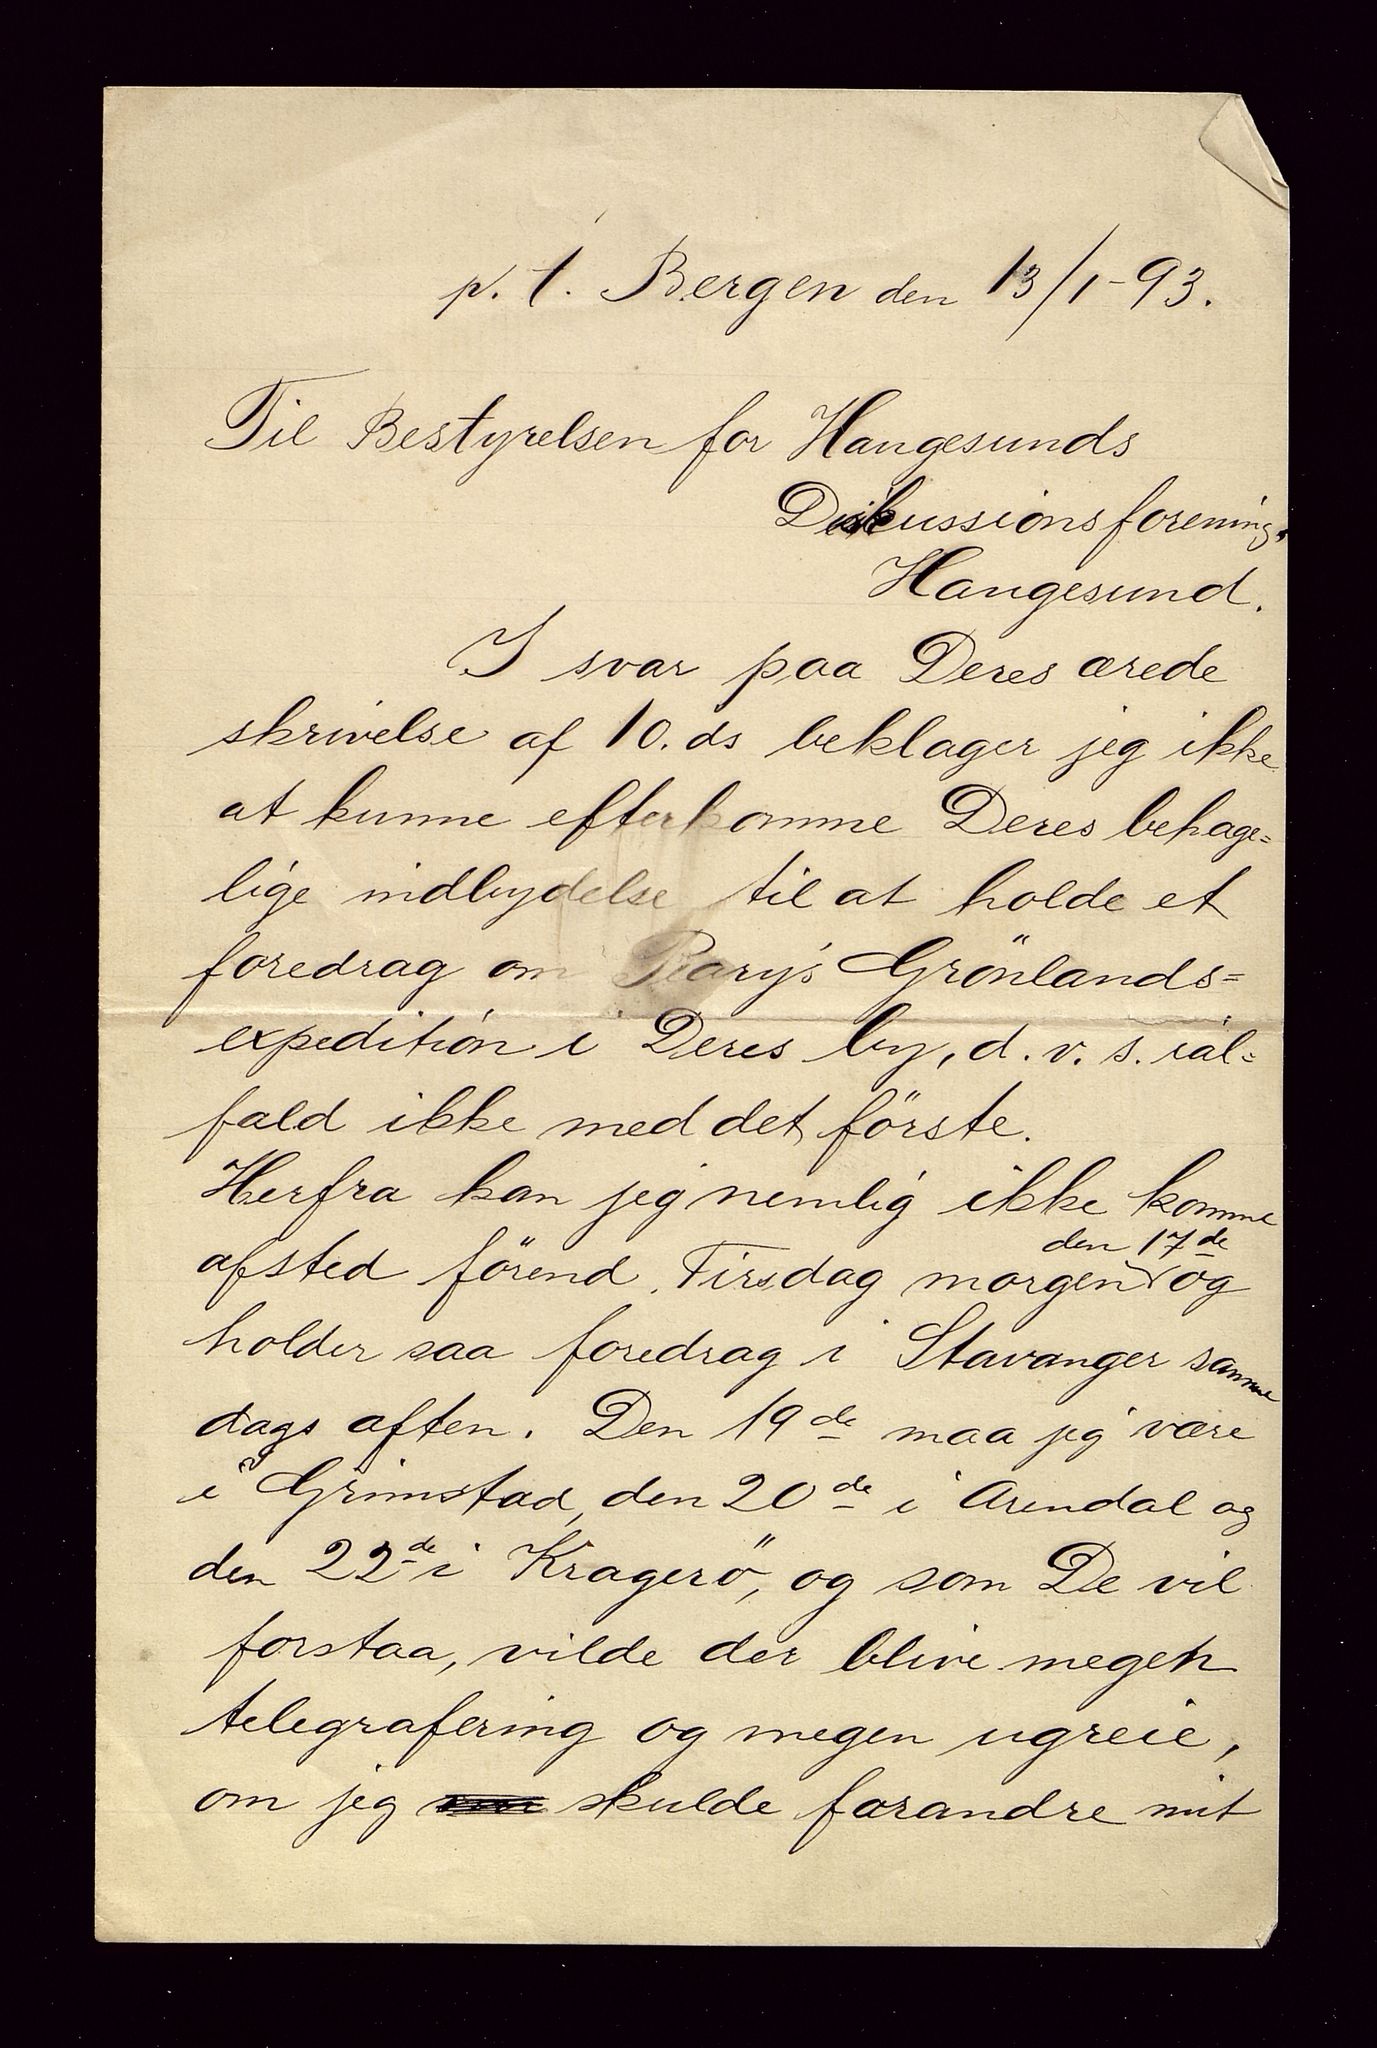 p. t. Bergen den 13/1-93.
Til Bestyrelsen for Haugesunds
Diskussionsforening,
Haugesund.
I svar paa Deres ærede
skrivelse af 10. ds beklager jeg ikke
at kunne efterkomme Deres behage=
lige indbydelse til at holde et
foredrag om Peary's Grönlands=
expedition i Deres by, d. v. s. ial=
fald ikke med det förste.
Herfra kan jeg nemlig ikke komme
den 17de
afsted förend Tirsdag morgen og
holder saa foredrag i Stavanger samme
dags aften. Den 19de maa jeg være
i Grimstad, den 20de i Arendal og
den 22de i Kragerö, og som De vil
forstaa, vilde der blive megen
telegrafering og megen ugreie,
om jeg skulde forandre mit